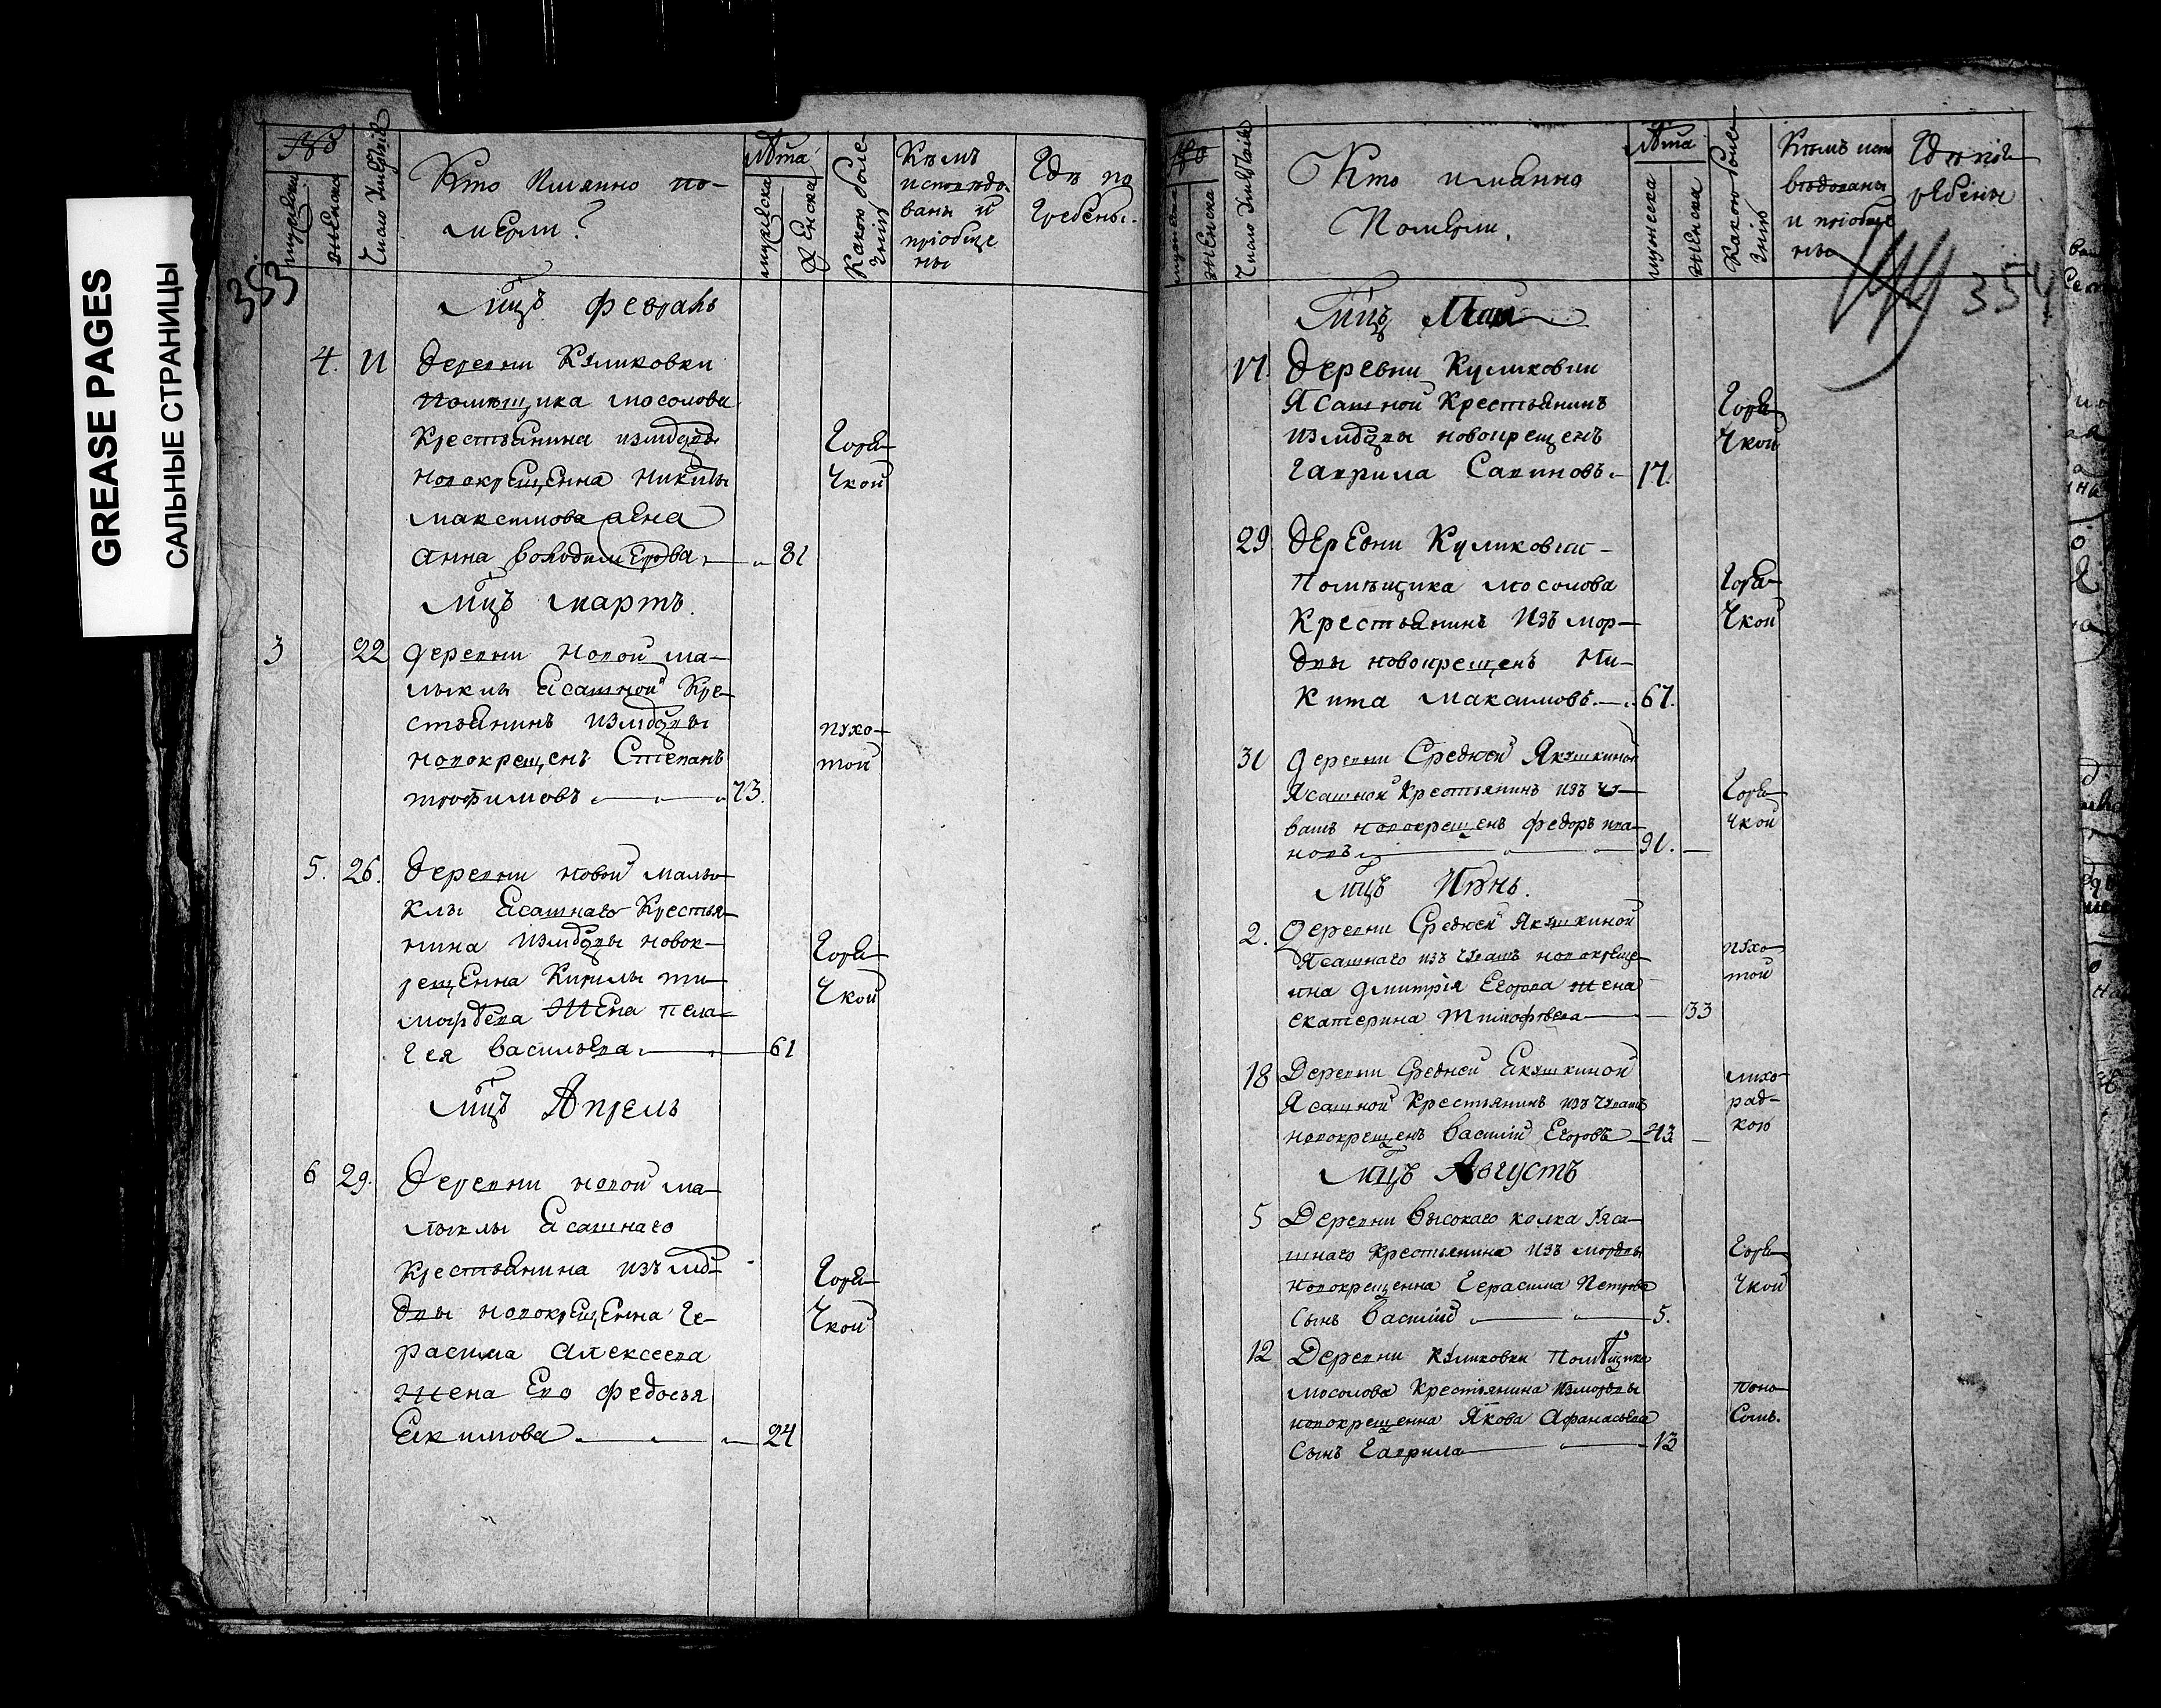 GREASE PAGES
САЛЬНЫЕ СТРАНИЦЫ
353
№
мужеска
женска
Число умертвій
Кто имянно по-
мерли?
Лѣта
мужеска
женска
Какою боле-
знію
Кѣмъ
исповѣдо-
ваны и
пріобще
ны
Гдѣ по
гребены.
Мцъ февраль
4. 11 деревни Куликовки
помѣщика мосолова
крестьянина измодвы
новокрещенна никиты
максимова жена
анна володимерова 81
Горя-
чкой
Мцъ мартъ.
3 22 деревни новой ма-
лыклы Ясашной кре-
стьянинъ измодвы
новокрещенъ Степанъ
трофимовъ 73.
пухо-
той
5. 26. деревни новой малы-
клы Ясашнаго крестья-
нина измодвы новок-
рещенна Кирилы ти-
мофѣева жена пела-
гея васильева 61
Горя-
чкой
Мцъ Апрель
6 29. деревни новой ма-
лыклы Ясашнаго
крестьянина изъ мо-
двы новокрещенна ге-
расима алексеева
жена Его федосья
Екимова 24
Горя-
чкой
№
мужеска
женска
Число умертвій
Кто имянно
Померли.
Лѣта
мужеска
женска
Какою боле-
знію
Кѣмъ испо
вѣдованы
и пріобще
ны
Гдѣ по
гребены
354
Мцъ Маи
17. деревни Куликовки
Ясашной крестьянинъ
измодвы новокрещенъ
гаврила Савиновъ. 17.
Горя-
чкой
29 деревни Куликовки
помѣщика мосолова
крестьянинъ изъ мор-
двы новокрещенъ Ни-
кита максимовъ 67.
Горя-
чкой
31 деревни Средней Якушкиной
Ясашной крестьянинъ изъ чу-
вашъ новокрещенъ федоръ ива-
новъ 91.
Горя-
чкой
Мцъ Июнь.
2. деревни Средней Якушкиной
Ясашнаго изъ чувашъ новокреще-
нна дмитрія Егорова жена
екатерина тимофѣева 33
пухо-
той
18 Деревни Средней Екушкиной
Ясашной крестьянинъ изъ чувашъ
новокрещенъ василій Егоровъ 43
лихо-
рад-
кою
Мцъ Августъ
5 Деревни высокаго колка Яса-
шнаго крестьянина изъ мордвы
новокрещенна герасима петрова
сынъ василій 5.
Горя-
чкой
12 Деревни куликовки помѣщика
мосолова крестьянина измордвы
новокрещенна якова афанасьева
сынъ гаврила 13
поно-
сомъ.